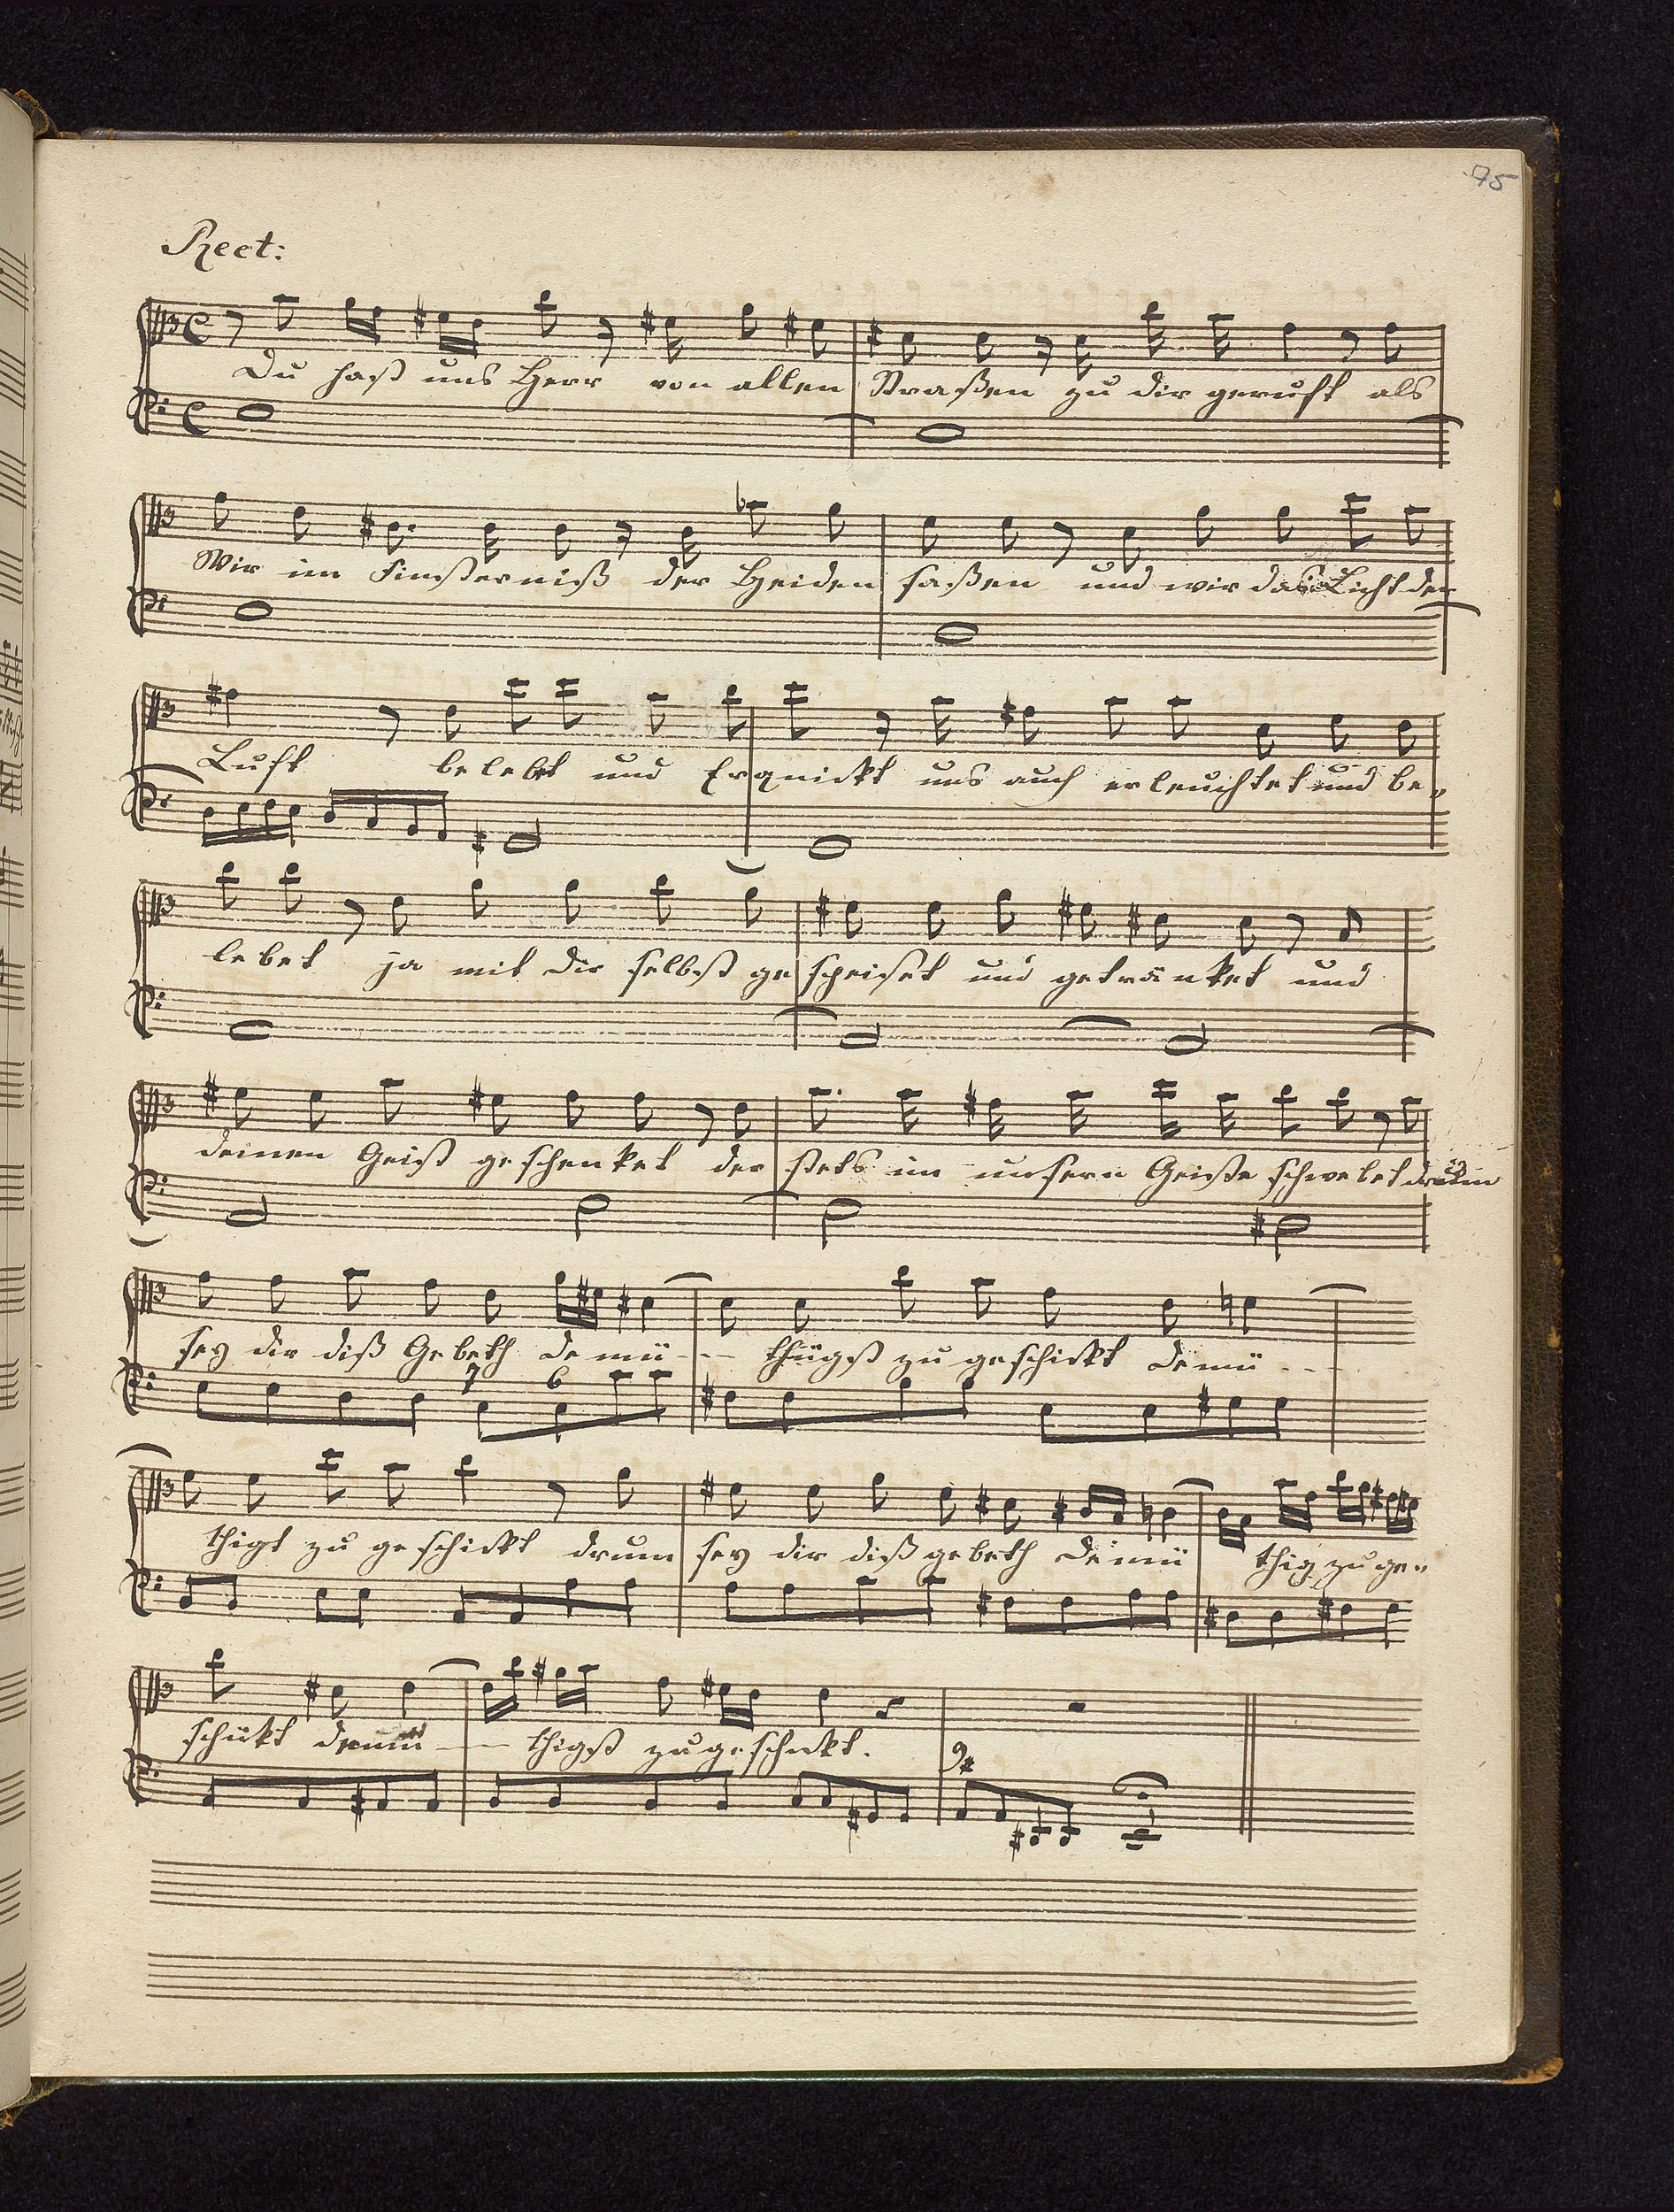 75
Rect:
Du hast uns Herr von allen Straßen zu dir geruft als
Wir im Finsterniß der Heiden saßen und wir das Licht der
Luft belebt und Erquickt uns auch erleuchtet und be-
lebet ja mit dir selbst gespeiset und getränket und
deinen Geist geschenket der stets im unsern Geiste schwebet drum
sey dir diß Gebeth demü-- thigst zu geschickt demü--
7 6
thigt zu geschickt drum sey dir diß gebeth demü thig zu ge-
schikt demü-- thigst zugeschickt.